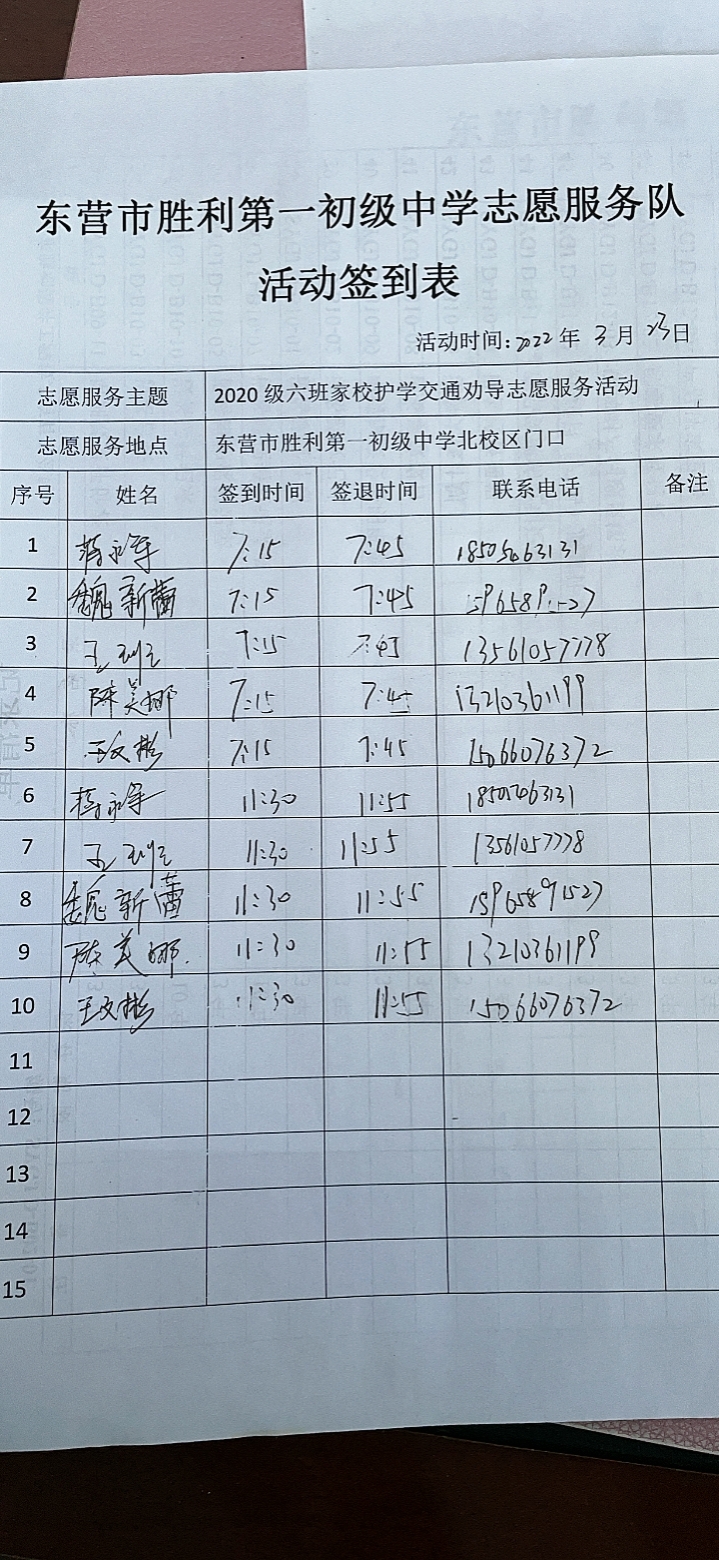 东营市胜利第一初级中学志愿服务队
活动签到表
活动时间:2022年 3月 23日
志愿服务主题 2020级六班家校护学交通劝导志愿服务活动
志愿服务地点 东营市胜利第一初级中学北校区门口
序号 姓名 签到时间 签退时间 联系电话 备注
1 蒋永军 7:15 7:45 18505463131
2 魏新蕾 7:15 7:45
3 7:15 7:45 13561057778
4 陈美娜 7:15 7:45 13210361199
5 王文彬 7:15 7:45 15066076372
6 蒋永军 11:30 11:55 18505463131
7 11:30 11:55 13561057778
8 魏新蕾 11:30 11:55 15965891527
9 陈美娜 11:30 11:55 13210361199
10 王文彬 11:30 11:55 15066076372
11
12
13
14
15